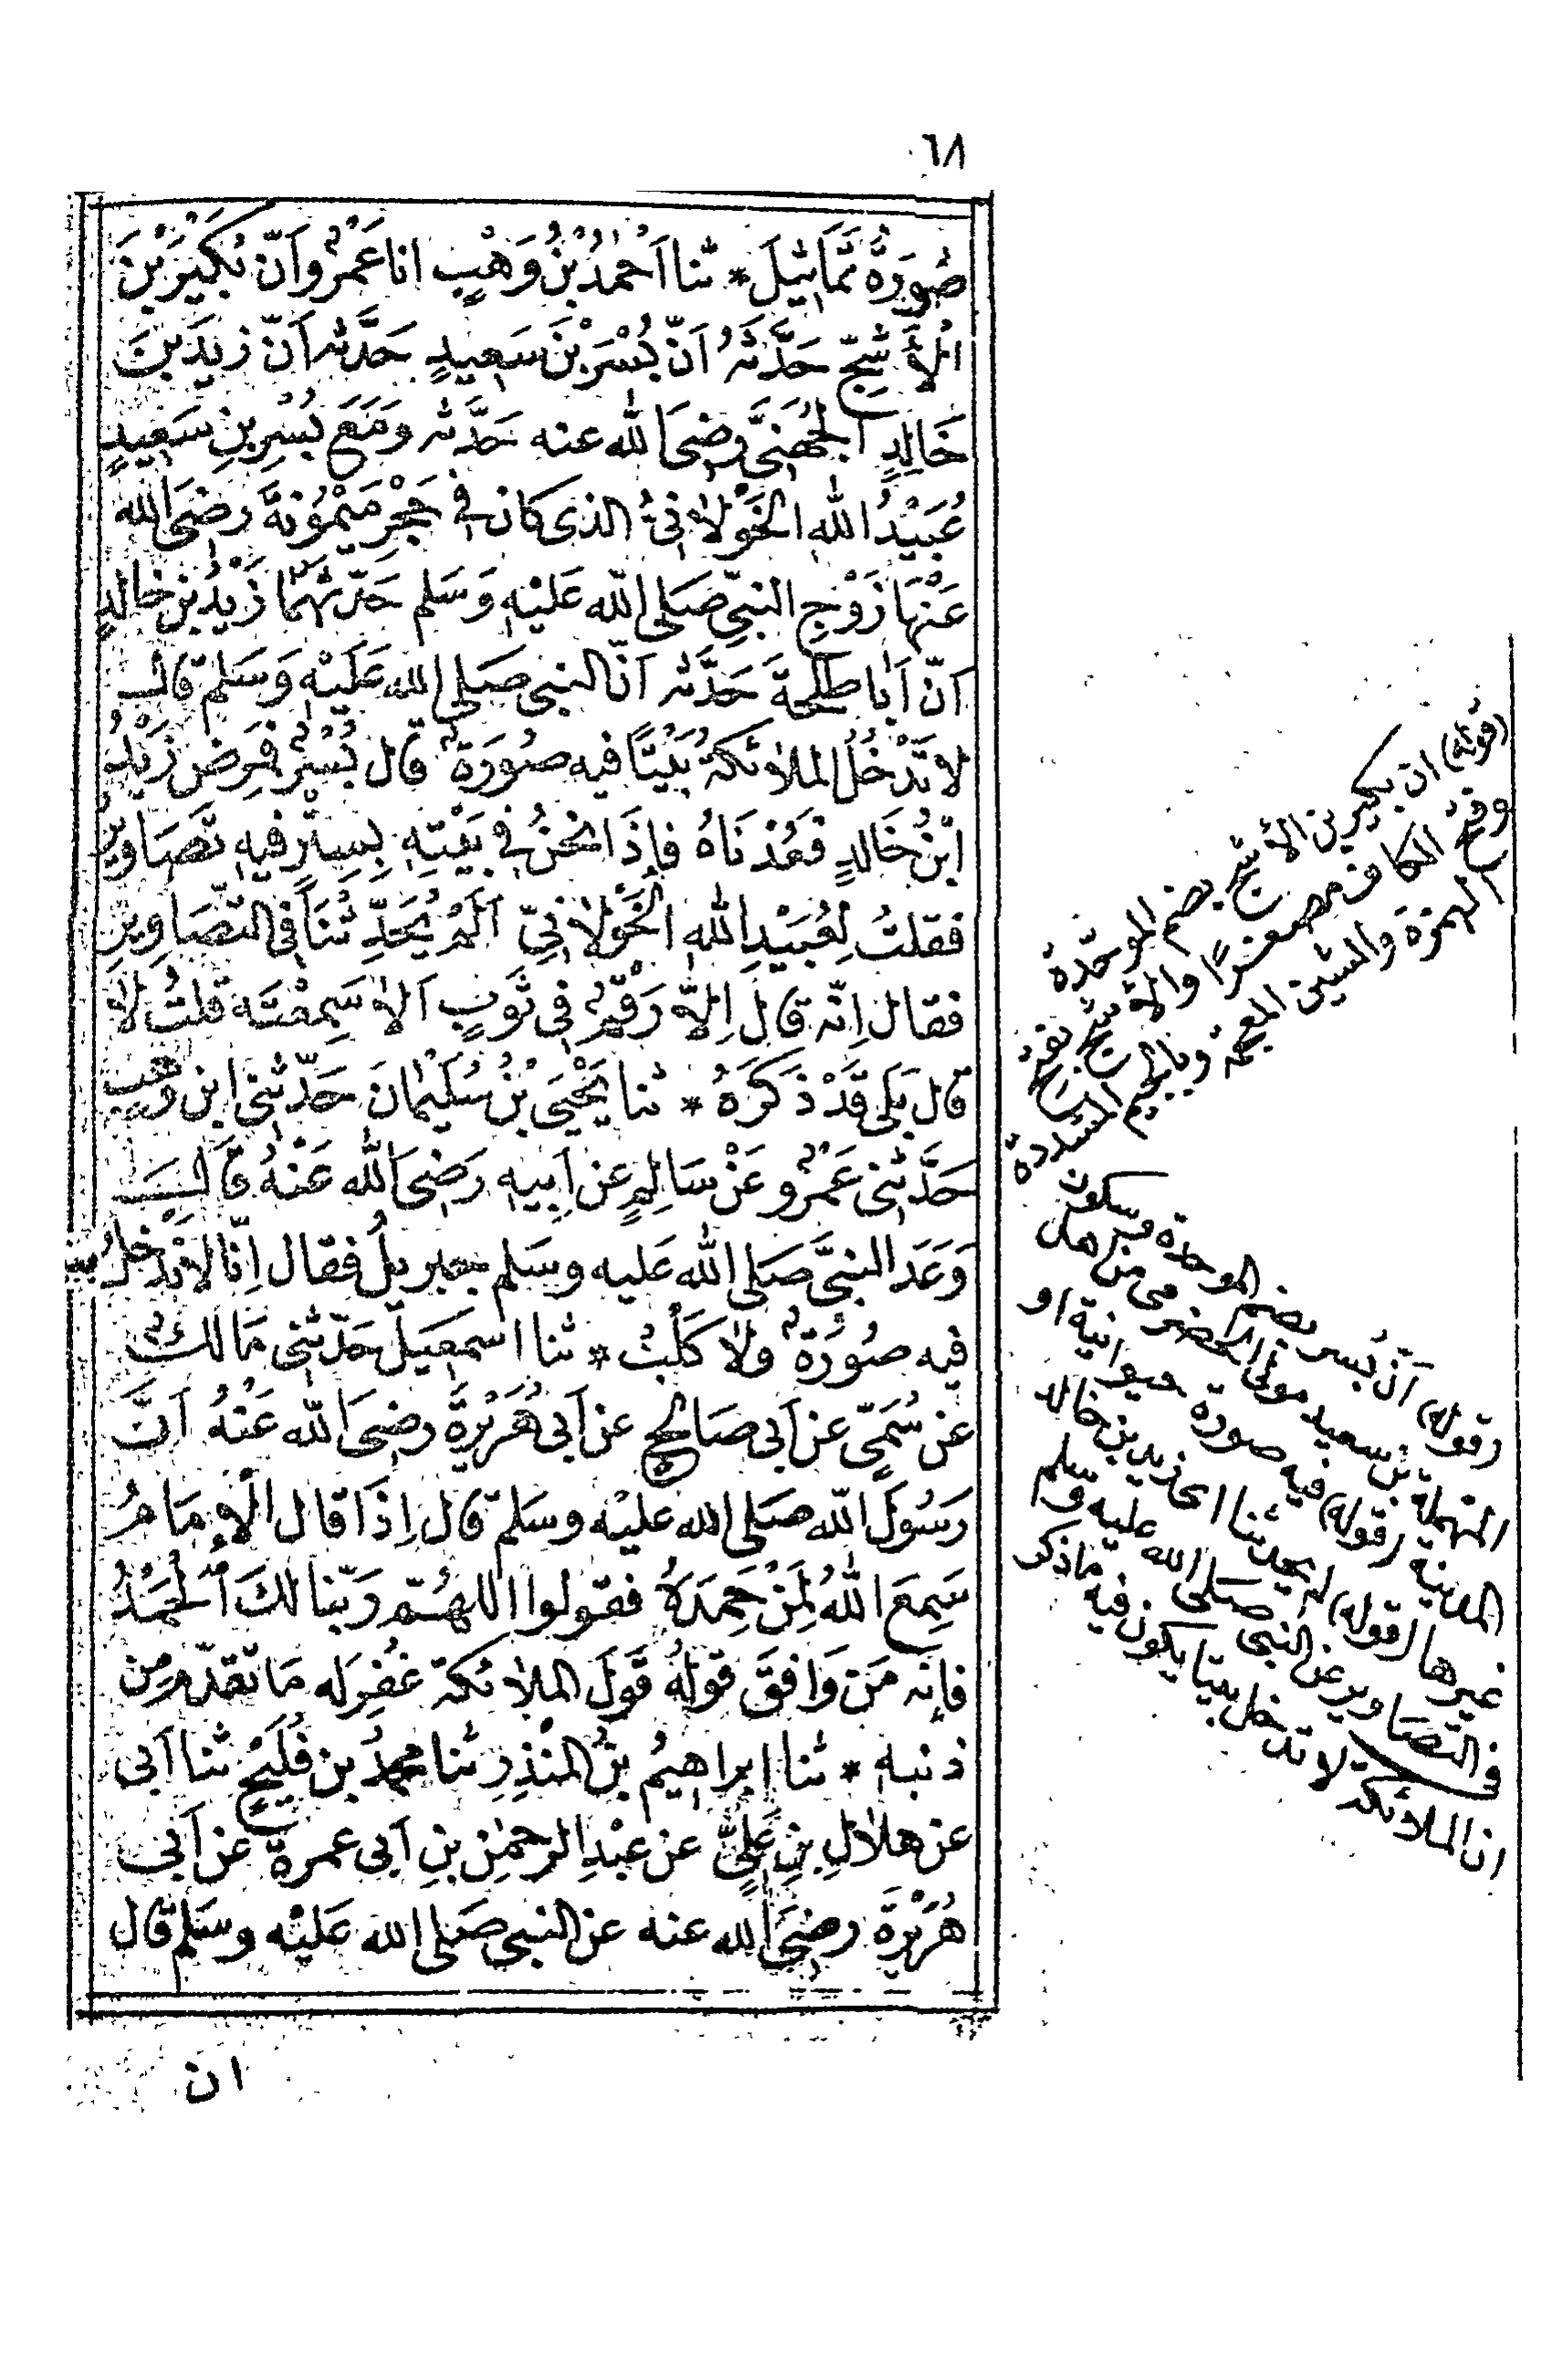 ٦٨
صُورَةُ تَمَاثِيلَ * ثنا أَحْمَدُ بْنُ وَهْبٍ انا عَمْرٌو أَنّ بُكَيْرَ بْنَ
الْأَشَجِّ حَدَّثَهُ أَنّ بُسْرَ بْنَ سَعِيدٍ حَدَّثه أَنّ زَيْدَ بْنَ
خَالِدٍ الْجُهَنِيَّ رضِيَ الله عنه حَدّثه وَمَعَ بُسْرِ بنِ سَعِيدٍ
عُبَيْدُ اللهِ الخَوْلَانِيُّ الذي كان في حَجْرِ مَيْمُونَةَ رضِيَ الله
عَنْهَا زَوْجِ النبيِّ صَلى الله عَلَيْهِ وَسَلم حَدّثهُمَا زَيْدُ بْنُ خالدٍ
أنّ أبَا طَلْحَةَ حَدَّثه أنّ النبي صَلى الله عَلَيْهِ وَسَلم قال
لا تَدْخُلُ الملائكةُ بَيْتًا فيه صُورَةٌ قال بُسْرٌ فمَرِضَ زَيْدُ
ابْنُ خَالدٍ فَعُدْنَاهُ فإذَا نَحْنُ في بَيْتِهِ بِسِتْرٍ فيهِ تَصَاوِيرُ
فقلتُ لِعُبَيْدِ اللهِ الخَوْلَانِيِّ أَلَمْ يُحَدِّثْنَا في التّصَاوِيرِ
فقال إنّه قال إلَّا رَقْمٌ في ثَوبٍ أَلا سَمِعْتَه قلتُ لَا
قال بَلَى قَدْ ذَكَرَهُ * ثنا يَحْيَى بْنُ سُلَيْمَانَ حَدّثني ابن وَهبٍ
حَدَّثني عَمْرٌو عَنْ سَالِمٍ عن أبِيهِ رَضِيَ الله عَنْهُ قال
وَعَدَ النبيَّ صَلى الله عَليه وسَلم جبريلُ فقال إنّا لا نَدْخلُ بيتا
فيه صُورَةٌ ولا كَلْبٌ * ثنا اسمعيلُ حَدّثني مَالكٌ
عن سُمَيٍّ عن أبي صَالحٍ عن أبي هُرَيْرةَ رضِيَ الله عَنْهُ أنّ
رَسُولَ الله صَلى الله عليْه وسَلم قال إذَا قال الْإمَامُ
سَمِعَ اللهُ لِمَنْ حَمِدَهُ فقولوا اللهُمّ رَبّنا لكَ الْحَمْدُ
فإنه مَن وَافقَ قولُهُ قَوْلَ الملائكة غُفِرَ له مَا تقدّم مِن
ذنبه * ثنا ابراهيمُ بنُ المنْذِرِ ثنا محمدُ بن فُلَيْحٍ ثنا أبي
عن هلالِ بنِ عَلِيٍّ عن عبْدِ الرحمٰن بنِ أبي عمرة عن أبي
هُرَيْرةَ رضِيَ الله عنه عن النبي صَلى الله عَليْه وسَلم قال
ان
(قوله) ان بكير بن الأشج بضم الموحّدة
وفتح الكاف مصغرًا والأشج بفتح
الهمزة والشين المعجمة وبالجيم المشددة
(قوله) أنّ بُسر بضم الموحدة وسكون
المهملة بن سعيد مولى الحضرمي من اهل
المدينة (قوله) فيه صورة حيوانية او
غيرها (قوله) الم يحدثنا اي زيد بن خالد
في التصاوير عن النبي صلى الله عليه وسلم
ان الملائكة لا تدخل بيتا يكون فيه ماذكر